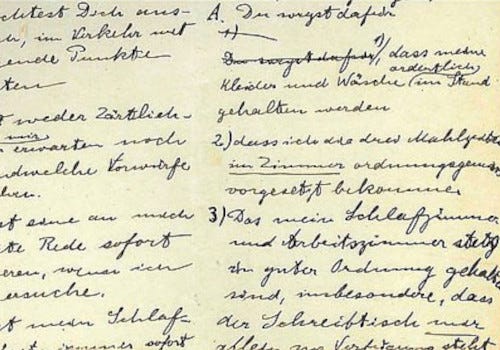 chtest Dich aus-
ch, im Verkehr mit
ende Punkte
ten
t weder Zärtlich-
mir
erwarten noch
ndwelche Vorwürfe
st eine an mich
te Rede sofort
eren, wenn ich
ersuche.
st mein Schlaf-
immer sofort
A. Du sorgst dafür
1)
Du sorgst dafür 1), dass meine
ordentlich
Kleider und Wäsche im Stand
gehalten werden
2) dass ich die drei Mahlzeite
im Zimmer ordnungsgemä
vorgesetzt bekomme
3) Das mein Schlafzimmer
und Arbeitszimmer stets
in guter Ordnung gehal
sind, insbesondere, dass
der Schreibtisch mir
allein zur Verfügung steht